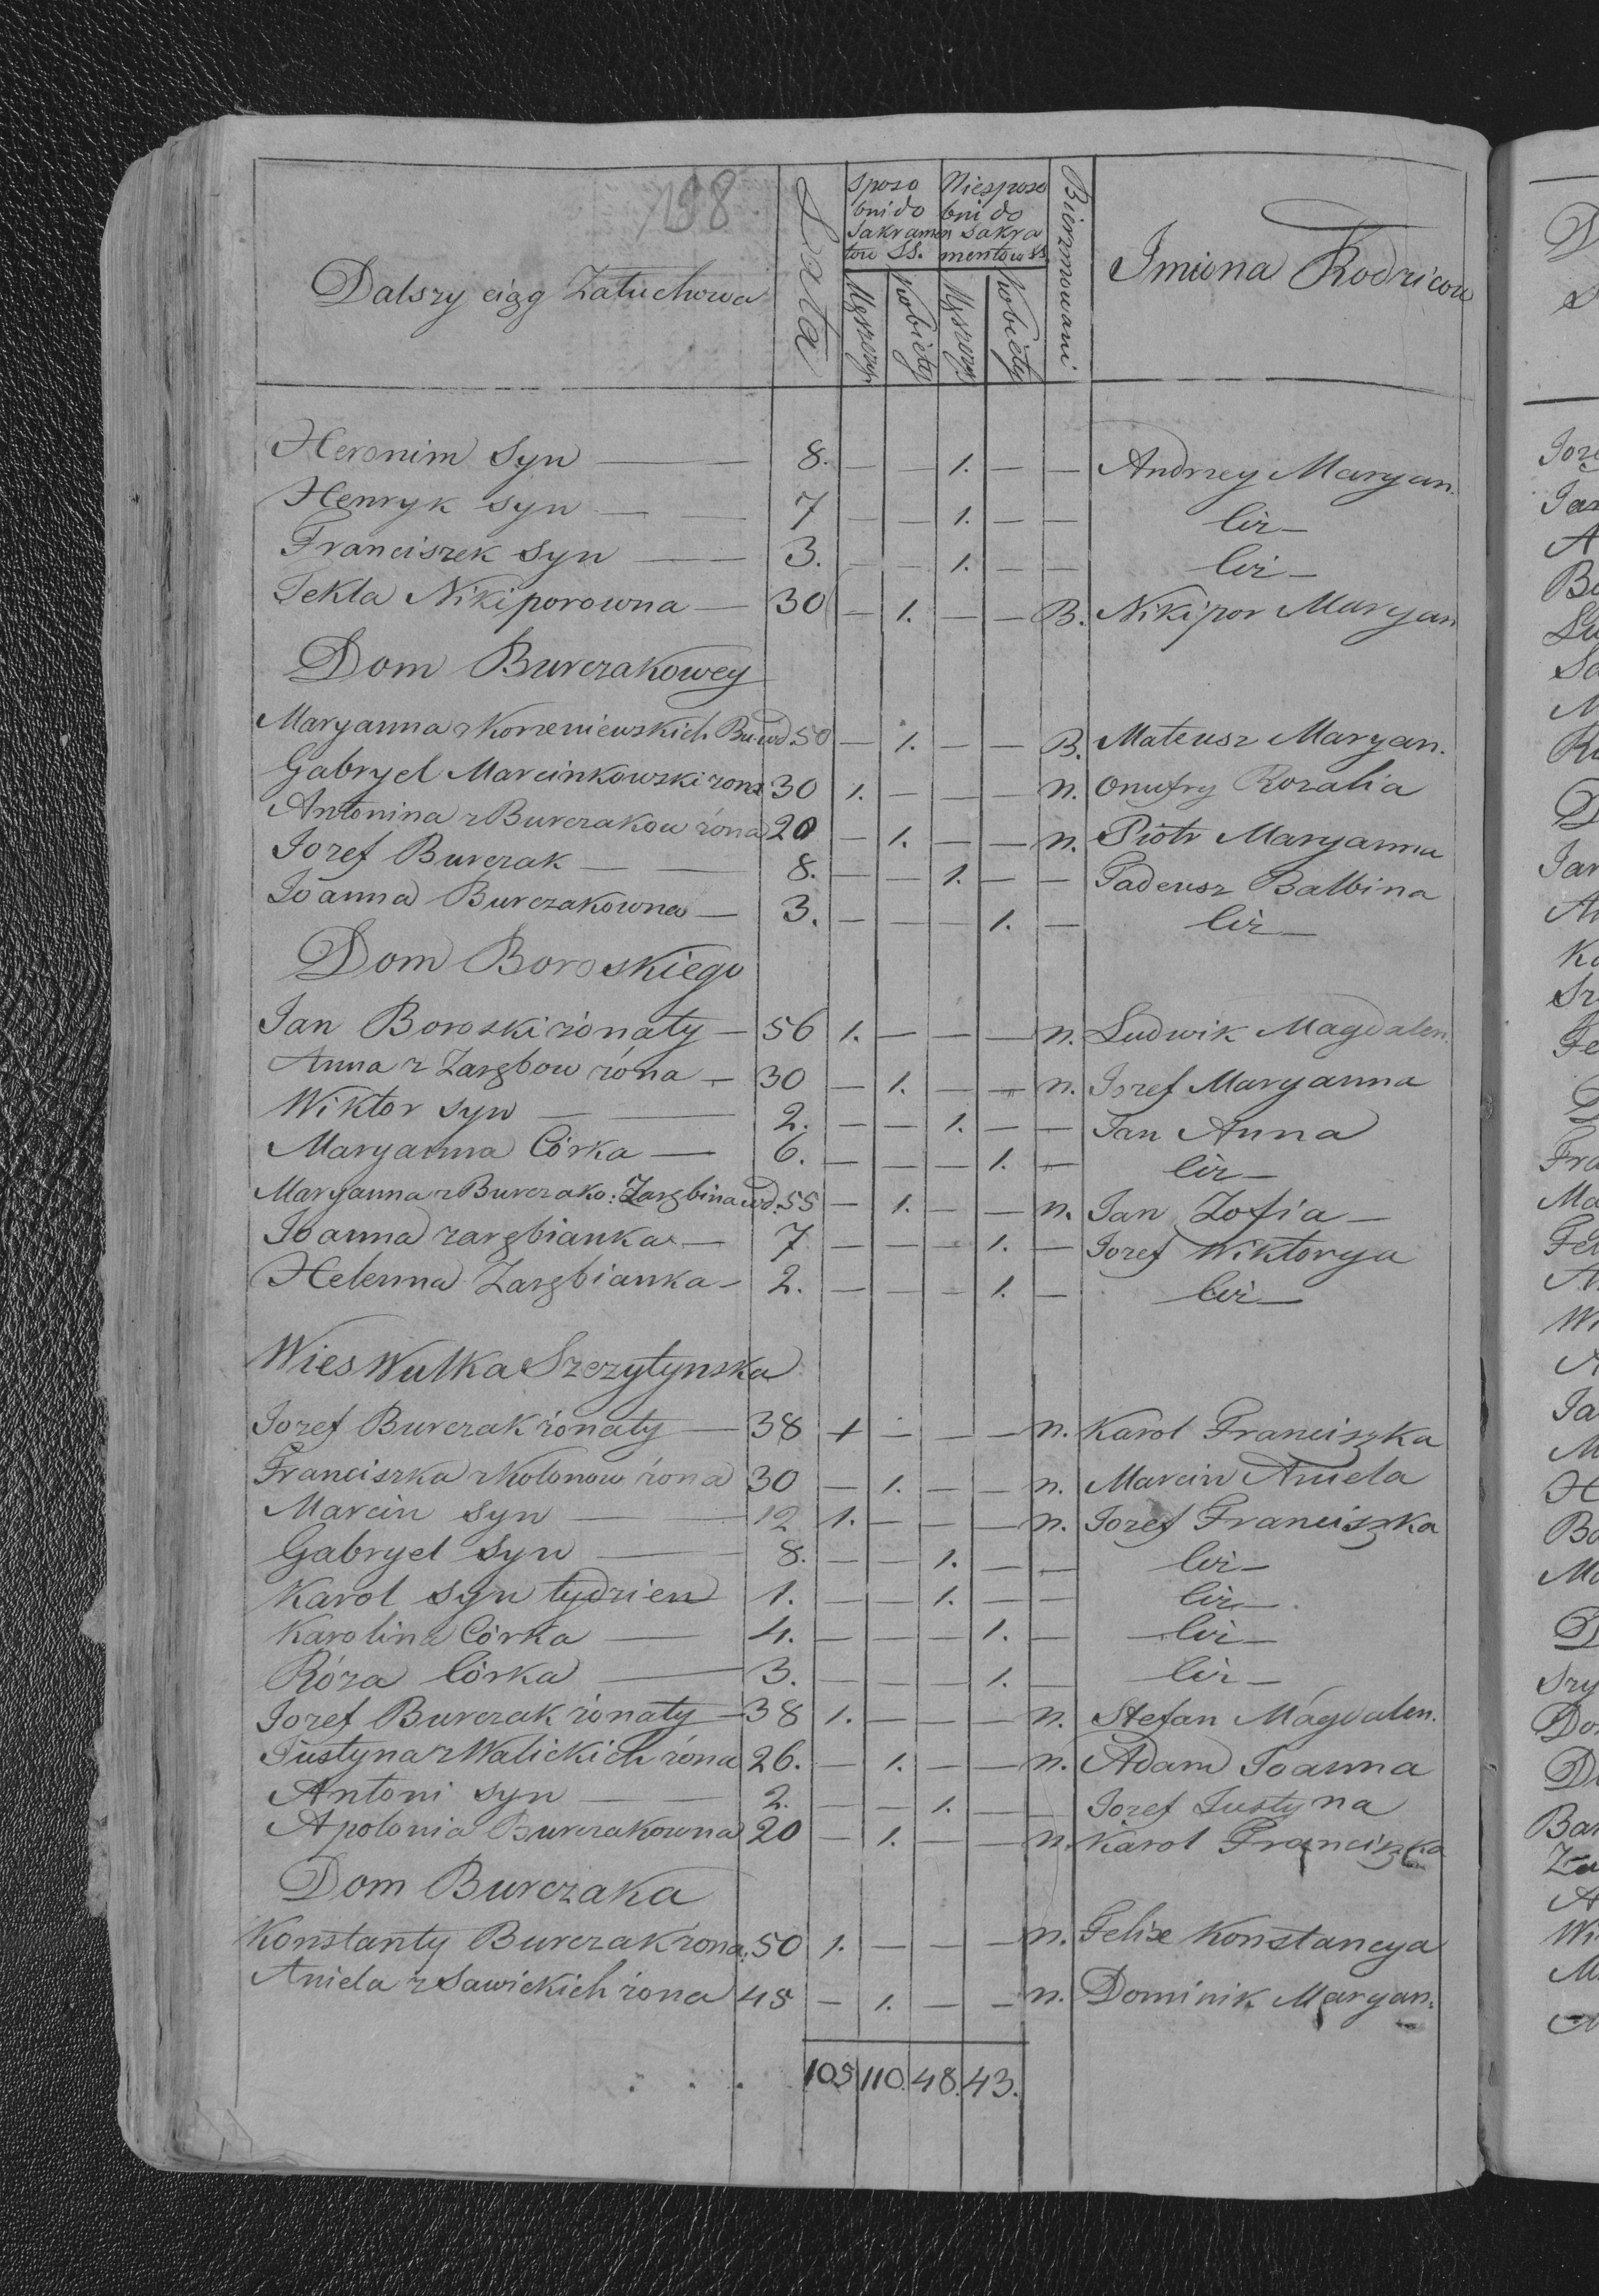 198
Dalszy ciąg Zatuchowa
Lata
Sposo bni do Sakramen tow SS.
Niesposo bni do Sakra mentow SS.
Męszczyz
Kobiety
Męszczyz
Kobiety
Bierzmowani
Imiona Rodzicow
Heronim Syn — 8. — — 1. — — Andrzey Maryan.
Henryk Syn — — 7 — — 1. — — ciż —
Franciszek Syn — — 3. — — 1. — — ciż —
Tekla Nikiporowna — 30 — 1. — — B. Nikipor Maryan
Dom Burczakowey
Maryanna z Korzeniewskich Bu. wd. 50 — 1. — — B. Mateusz Maryan.
Gabryel Marcinkowski żona. 30 1. — — — n. Onufry Rozalia
Antonina z Burczakow żona 20 — 1. — — n. Piotr Maryanna
Jozef Burczak — — 8. — — 1. — — Tadeusz Balbina
Joanna Burczakowna — 3. — — — 1. — ciż —
Dom Boroskiego
Jan Boroski żonaty — 56 1. — — — n. Ludwik Magdalen.
Anna z Zarębow żóna — 30 — 1. — — n. Jozef Maryanna
Wiktor syn — — 2. — — 1. — — Jan Anna
Maryanna Córka — 6. — — — 1. — ciż —
Maryanna z Burczako: Zarębina wd. 55 — 1. — — n. Jan Zofia —
Joanna zarębianka — 7 — — — 1. — Jozef Wiktorya
Helenna Zarębianka — 2. — — — 1. — ciż —
Wies Wulka Szczytynska
Jozef Burczak żonaty — 38 1 — — — n. Karol Franciszka
Franciszka z Kolonow żona 30 — 1. — — n. Marcin Aniela
Marcin syn — — 12 1. — — — n. Jozef Franciszka
Gabryel Syn — 8. — — 1. — — ciż —
Karol syn tydzien 1. — — 1. — — ciż —
Karolina Córka — 4. — — — 1. — ciż —
Róza Córka — 3. — — — 1. — ciż —
Jozef Burczak żonaty — 38 1. — — — n. Stefan Magdalen.
Justyna z Walickich żona 26. — 1. — — n. Adam Joanna
Antoni syn — — 2. — — 1. — — Jozef Justyna
Apolonia Burczakowna 20 — 1. — — n. Karol Franciszka
Dom Burczaka
Konstanty Burczak żona. 50 1. — — — n. Felix Konstancya
Aniela z Sawickich żona 45 — 1. — — n. Dominik Maryan.
105 110. 48. 43.